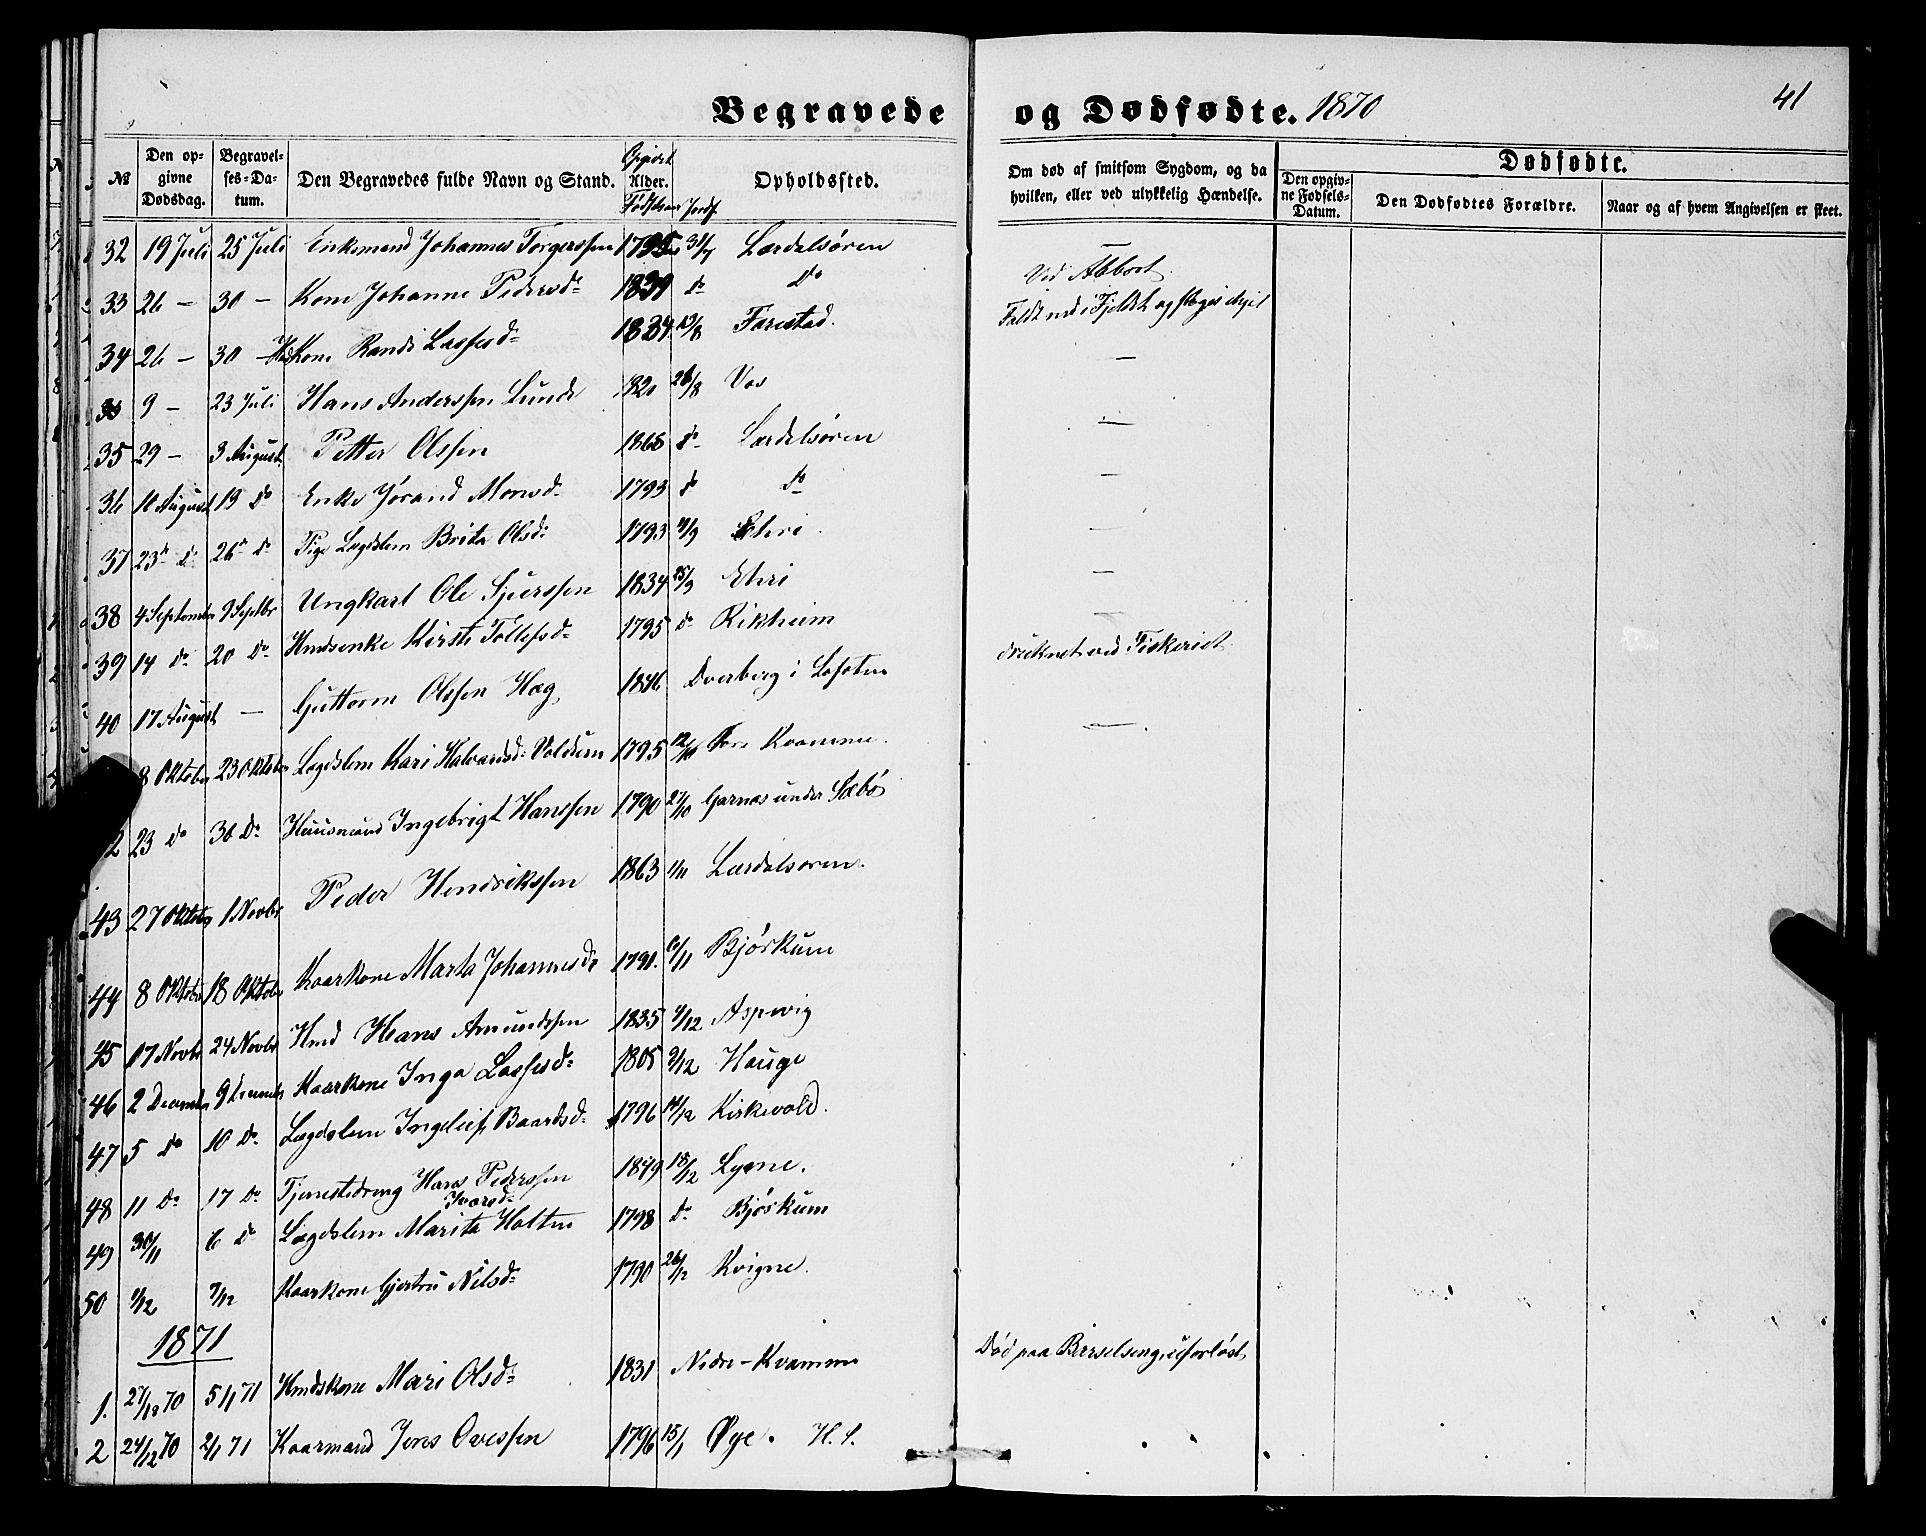 Begravede og Dødfødte. 1870 41
№ Den opgivne Dødsdag. Begravelses-Datum. Den Begravedes fulde Navn og Stand. Opgivet Alder. Fødselsaar Jordf. Opholdssted. Om død af smitsom Sygdom, og da hvilken, eller ved ulykkelig Hændelse. Dødfødte. Den opgivne Fødsels-Datum. Den Dødfødtes Forældre. Naar og af hvem Angivelsen er skeet.
32 19 Juli 25 Juli Enkemand Johannes Torgerssen 1795 31/7 Lærdalsøren —
33 26 — 30 — Kone Johanne Pedersd: 1839 do do Ved Abbort
34 26 — 30 — Kone Randi Lassesd: 1834 Farestad. Faldt ned i Fjeldet og sloges ihjel
9 — 23 Juli Hans Anderssen Lunde 1820 28/8 Vos —
35 29 — 3 August Petter Olssen 1868 do Lærdalsøren —
36 10 August 19 do Enke Jørand Monsd: 1793 do do —
37 23de do 26de do Pige Lægdslem Brita Olsd: 1793 4/9 Ehri. —
38 4 September 9 Septbr Ungkarl Ole Sjurssen 1834 25/9 Ehri —
39 14 do 20 do Hmdsenke Kirsti Tollefsd: 1795 do Rikheim —
40 17 August — Guttorm Olssen Hæg, 1846 Dverberg i Lofoten druknet ved Fiskeriet
8 Oktober 23 Oktober Lægdslem Kari Halvorsd: Voldum 1795 12/10 Kvamme. —
2 23 do 30 do Huusmand Ingebrigt Hanssen 1790 27/10 Garnaas under Sæbø
43 27 Oktobr 1 Novbr Peder Henrikssen 1863 1/11 Lærdalsøren.
44 8 Oktobr 18 Oktobr Kaarkone Marta Johannesd: 1791. 6/11 Bjørkum
45 17 Novbr 24 Novbr Hmd Hans Amundssen 1835 4/12 Aspevig
46 2 Decembr 9 Decembr Kaarkone Inga Lassesd: 1805 9/12 Hauge
47 5 do 10 do Lægdslem Ingeleif Baardsd: 1796 14/12 Kirkevold.
48 11 do 17 do Tjenestedreng Hans Pederssen 1849 18/12 Lysne.
49 30/11 6 do Lægdslem Marita Ivarsd: Holten 1798 do Bjørkum
50 1/12 7/12 Kaarkone Gjertru Nilsd: 1790 26/12 Kvigne.
1871
1. 27/12 70 5/1 71 Hmdskone Mari Olsd: 1831 Nedre-Kvamme Død paa Barselseng, uforløst
2 24/12 70 2/1 71 Kaarmand Jens Ovessen 1796 15/1 Øye. H. S.